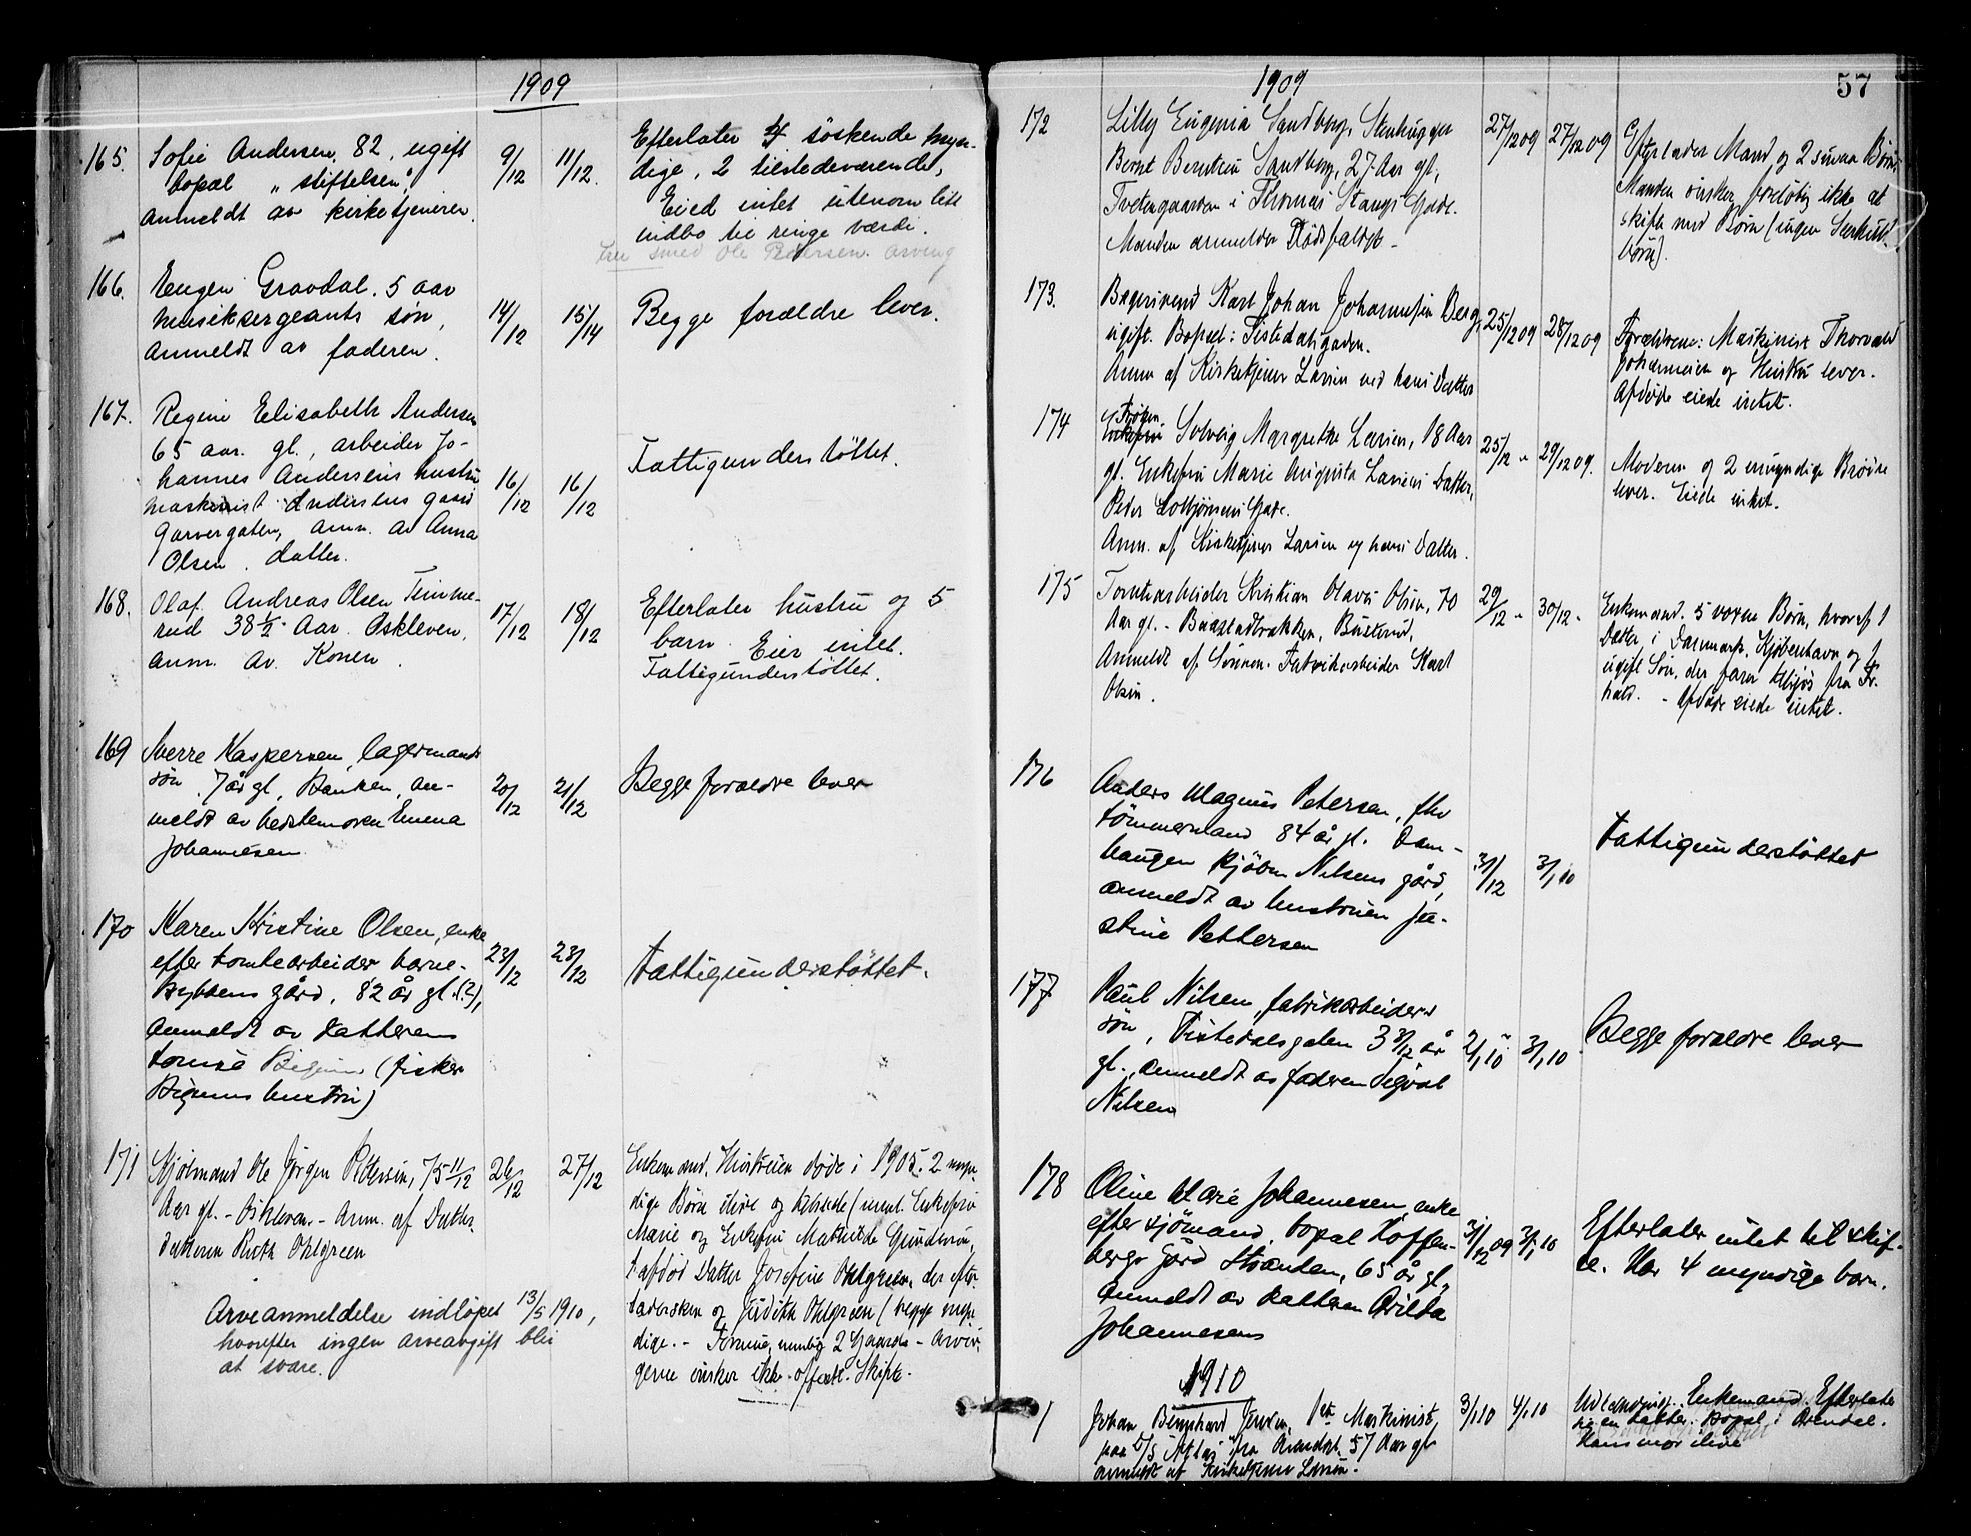 1909
165. Sofie Andersen, 82, ugift
bopæl "stiftelsen",
anmeldt av kirketjeneren.
9/12 11/12.
Efterlater 4 søskende myn-
dige, 2 tilstedeværende,
Eied intet utenom litt
indbo til ringe værdi.
smed Ole Pedersen. arving
166. Eugen Gravdal. 5 aar
musiksergeants søn,
anmeldt av faderen.
14/12 15/14
Begge forældre lever.
167. Regine Elisabeth Andersen
65 aar. gl., arbeider Jo-
hannes Andersens hustru
maskinist Andersens gaard
Garvergaten, anm. av Anna
Olsen. datter.
16/12 16/12
Fattigunderstøttet.
168. Olaf Andreas Olsen Timme-
rud 38 1/2 Aar. Oskleven.
anm. av. Konen.
17/12 18/12
Efterlater hustru og 5
barn. Eier intet.
Fattigunderstøttet.
169 Sverre Kaspersen, lagermands
søn, 7 år gl, Banken, an-
meldt av bedstemoren Emma
Johannesen
20/12 21/12
Begge forældre lever
170 Karen Kristine Olsen, enke
efter tomtearbeider
gård, 82 år gl.(?),
anmeldt av datteren
Bignum (fisker
Bignums hustru)
23/12 23/12
Fattigunderstøttet.
171 Sjømand Ole Jørgen Pedersen, 75 11/12
Aar gl. - Oskleven. - Anm. af Datter-
datteren Ruth Ohlgreen
26/12 27/12
Enkemand. Hustruen døde i 1905. 2 myn-
dige Børn ilive og tilstede (nml. Enkefru
Marie og Enkefru Mathilde Gundersen,
1 afdød Datter Josefine Ohlgreen, der efter-
og Judith Ohlgreen (begge myn-
dige. - Formue, nemlig 2 Gaarde - Arvin-
gerne ønsker ikke offentl. Skifte.
Arveanmeldelse indløpet 13/5 1910,
hvorefter ingen arveavgift blir
at svare.
1909
57
172 Lilly Eugenia Sandberg, Stenhugger
Bernt Berntsen Sandberg, 27 Aar gl,
Tvetengaarden i Thomas Stangs Gade.
Manden anmelder Dødsfaldet -
27/12 09 27/12 09
Efterlader Mand og 2 smaa Børn.
Manden ønsker foreløbig ikke at
skifte med Børn (ingen Særkuld-
børn).
173. Bagersvend Karl Johan Johannesen Berg,
ugift. Bopæl: Tistedalsgaden.
Anm af Kirketjener Larsen ved hans Datter
25/12 09 28/12 09
Forældrene: Maskinist Thorvald
Johannesen og Hustru lever.
Afdøde eiede intet.
174 Frøken
Solveig Margrethe Larsen, 18 Aar
gl. Enkefru Marie Augusta Larsens Datter,
Peder Colbjørnsens Gade.
Anm. af Kirketjener Larsen og hans Datter.
25/12 " 29/12 09.
Moderen og 2 umyndige Brødre
lever. Eiede intet.
175 Tomtearbeider Kristian Olaus Olsen, 70
Aar gl. - Baastadbrækken,
Anmeldt af Sønnen. Fabrikarbeider Karl
Olsen.
29/12 " 30/12 "
Enkemand. 5 voxne Børn, hvoraf 1
Datter i Danmark, Kjøbenhavn og 1
ugift Søn, der farer tilsjøs fra Fr.
hald. - Afdøde eiede intet.
176 Anders Magnus Petersen, fhv
tømmermand 84 år gl. Dam-
haugen kjøbm Nilsens gård,
anmeldt av hustruen Ju-
stine Pettersen
31/12 3/1 10
Fattigunderstøttet
177 Paul Nilsen, fabrikarbeiders
søn, Tistedalsgaten 3 3/12 år
gl., anmeldt av faderen Sigval
Nilsen
2/1 10 3/1 10
Begge forældre lever
178 Oline Marie Johannesen, enke
efter sjømand, bopæl Hoffen-
bergs Gård Stranden, 65 år gl,
anmeldt av datteren
Johannesen
31/12 09 3/1 10
Efterlater intet til skif-
te. Har 4 myndige barn.
1910
1 Johan Bernhard Jensen, 1ste Maskinist,
paa D/S Atlas fra Arendal. 57 Aar gl.
anmeldt af Kirketjener Larsen.
3/1 10 4/1 10
Enkemand. Efterlater
en datter. Bopæl i Arendal.
Hans mor ilive